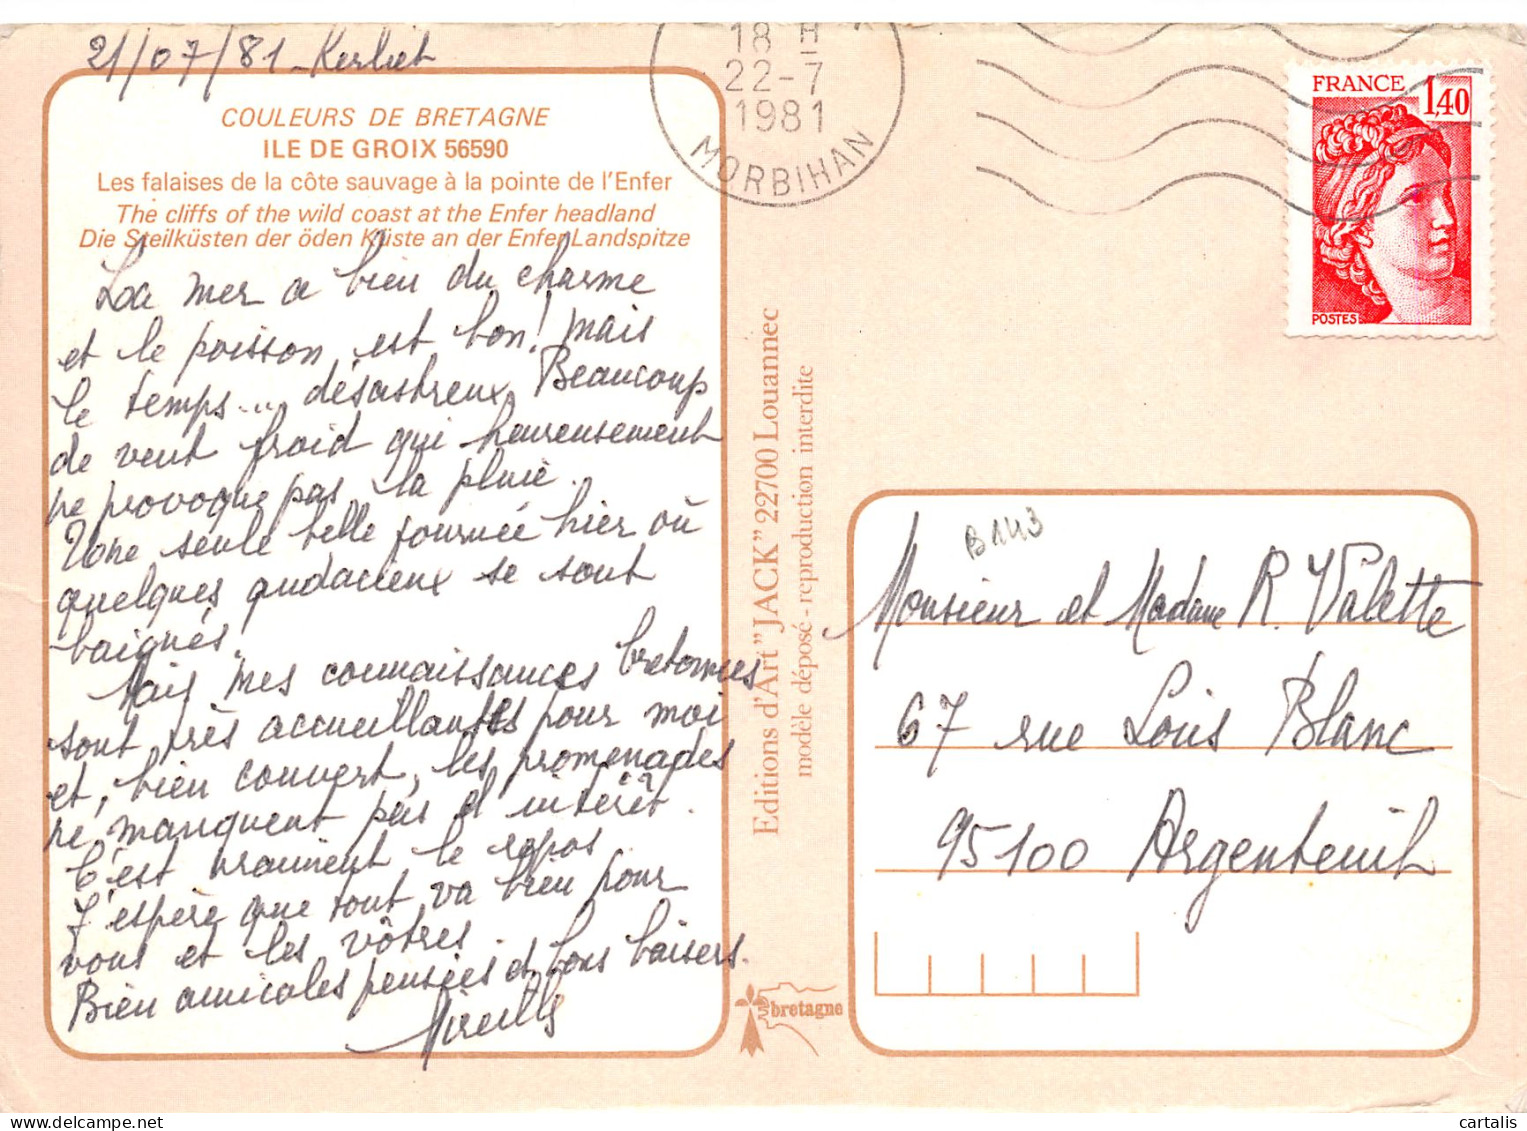 21/07/81 - Kerliet
COULEURS DE BRETAGNE
ILE DE GROIX 56590
Les falaises de la côte sauvage à la pointe de l'Enfer
The cliffs of the wild coast at the Enfer headland
Die Steilküsten der öden Küste an der Enfer Landspitze
La mer a bien du charme
et le poisson est bon! Mais
le temps... désastreux. Beaucoup
de vent froid qui heureusement
ne provoque pas la pluie.
Une seule belle journée hier où
quelques audacieux se sont
baignés.
Mais mes connaissances bretonnes
sont très accueillantes pour moi
et, bien couvert, les promenades
ne manquent pas d'intérêt.
C'est vraiment le repos
J'espère que tout va bien pour
vous et les vôtres
Bien amicales pensées et bons baisers.
Mireille
18 H
22-7
1981
MORBIHAN
FRANCE 1,40
POSTES
Editions d'Art "JACK" 22700 Louannec
modèle déposé - reproduction interdite
bretagne
B143
Monsieur et Madame R. Valette
67 rue Louis Blanc
95100 Argenteuil
cartalis